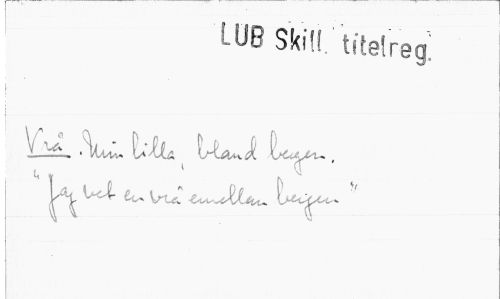 LUB Skill. titelreg.
Vrå. Min lilla, bland bergen.
"Jag vet en vrå emellan bergen"